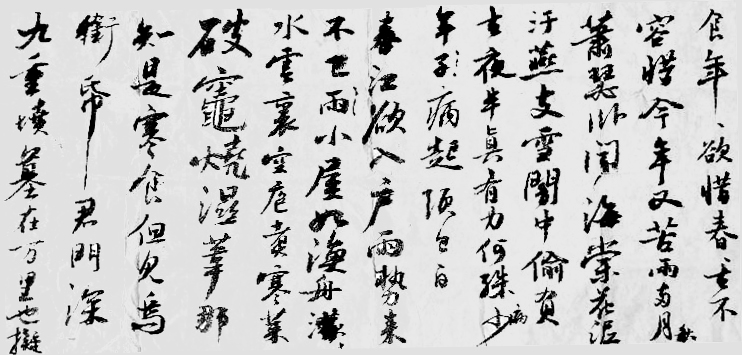 食年、欲惜春去不
容惜今年又苦雨兩月秋
蕭瑟卧聞海棠花泥
汙燕支雪闇中偷負
去夜半真有力何殊少
年子病起頭已白
春江欲入户雨勢來
不已雨小屋如漁舟濛、
水雲裏空庖煮寒菜
破竈燒濕葦那
知是寒食但見烏
銜帋君門深
九重墳墓在万里也擬